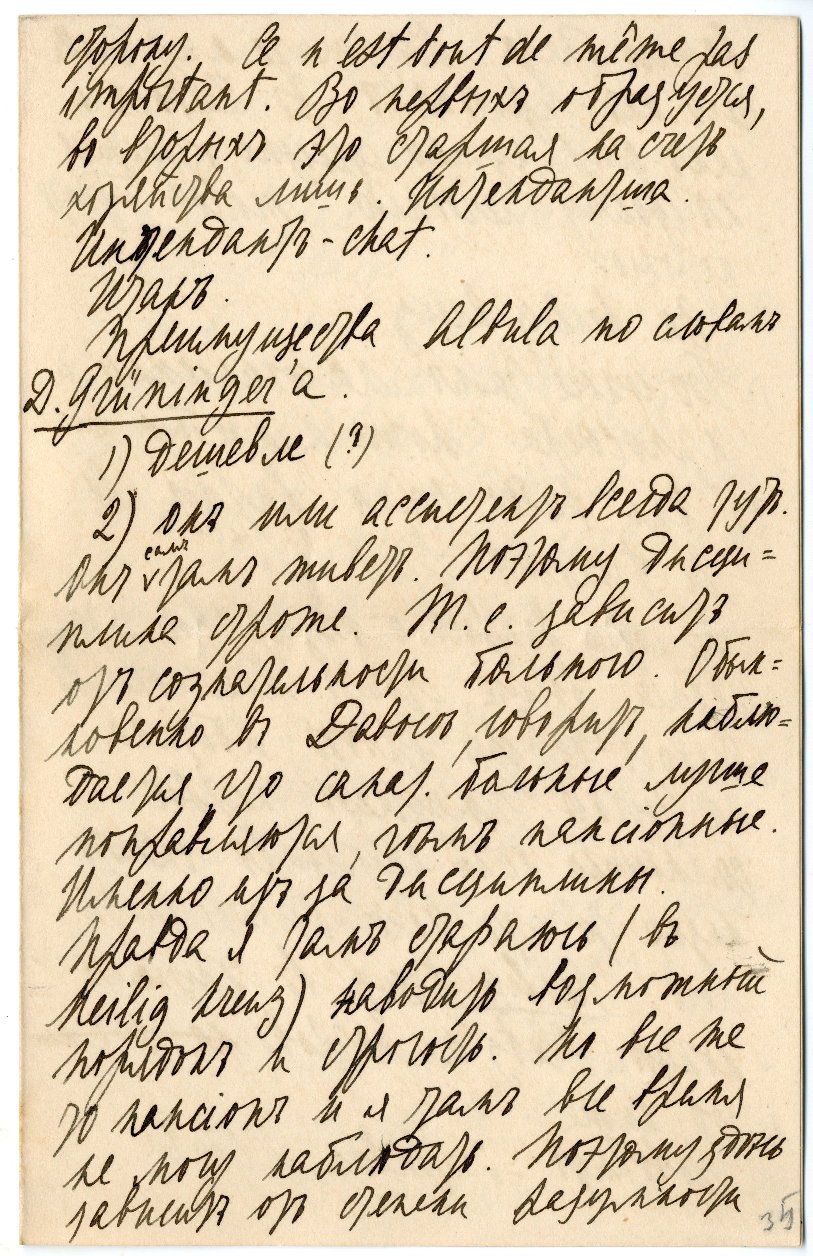 сторону. Ce n'est tout de même pas
important. Во первыхъ образуется,
во вторыхъ это старшая на счетъ
хозяйства лишь. Интендантша.
Интендантъ-chat.
Итакъ.
Преимущества Albula по словамъ
D. Grüninger'а.
1) Дешевле (?)
2) онъ или ассистентъ всегда тутъ.
Онъ самъ тамъ живетъ. Поэтому дисци=
плина строже. Т. е. зависитъ
отъ сознательности больного. Обык=
новенно въ Давосѣ, говоритъ, наблю=
дается что санат. больные лучше
поправляются, чѣмъ пансіонные.
Именно изъ за дисциплины.
Правда я тамъ стараюсь (въ
Heilig Kreuz) наводить возможный
порядокъ и строгость. Но все же
то пансіонъ и я тамъ все время
не могу наблюдать. Поэтому здѣсь
зависитъ отъ степени разумности
35